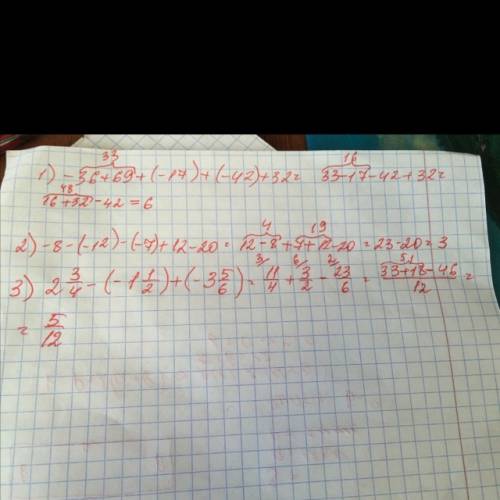 33 16
1) -36+69+(-17)+(-42)+32= 33-17-42+32=
48
16+32-42=6
4 19
2) -8-(-12)-(-7)+12-20= 12-8+7+12-20=23-20=3
3) 2 3/4 - (-1 1/2) + (-3 5/6) = 11/4 + 3/2 - 23/6 = 33+18-46/12 =
= 5/12